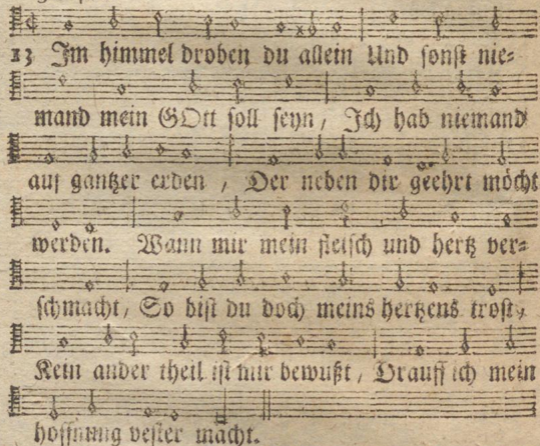 13 Im himmel droben du allein Und sonst nie⸗
mand mein GOtt soll seyn, Ich hab niemand
auf gantzer erden, Der neben dir geehrt möcht
werden. Wann mir mein fleisch und hertz ver⸗
schmacht, So bist du doch meins hertzens trost,
Kein ander theil ist mir bewußt, Drauff ich mein
hoffnung vester macht.